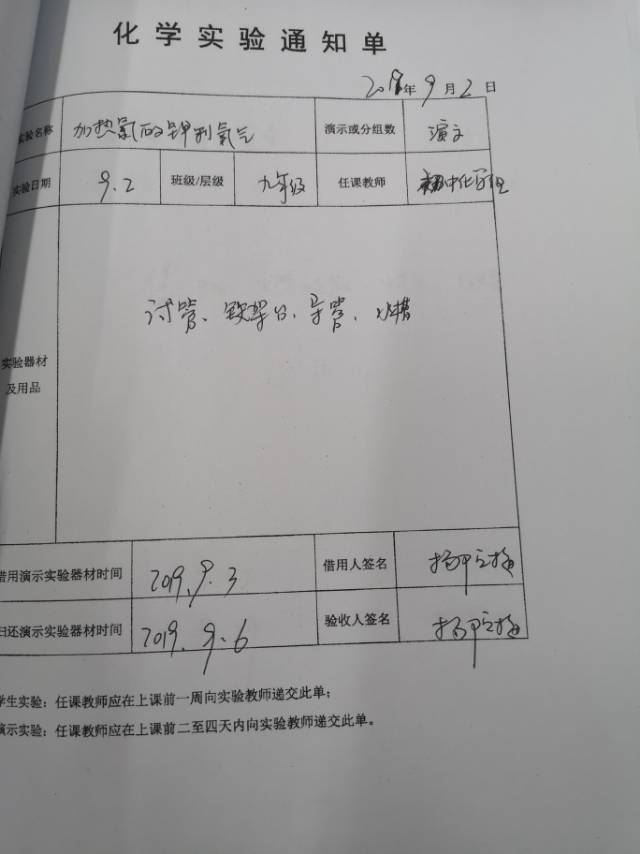 化学实验通知单
2019年9月2日
实验名称 加热氯酸钾制氧气 演示或分组数 演示
实验日期 9.2 班级/层级 九年级 任课教师 初中化学组
实验器材及用品 试管、铁架台、导管、水槽
借用演示实验器材时间 2019.9.3 借用人签名
归还演示实验器材时间 2019.9.6 验收人签名
学生实验：任课教师应在上课前一周向实验教师递交此单；
演示实验：任课教师应在上课前二至四天内向实验教师递交此单。